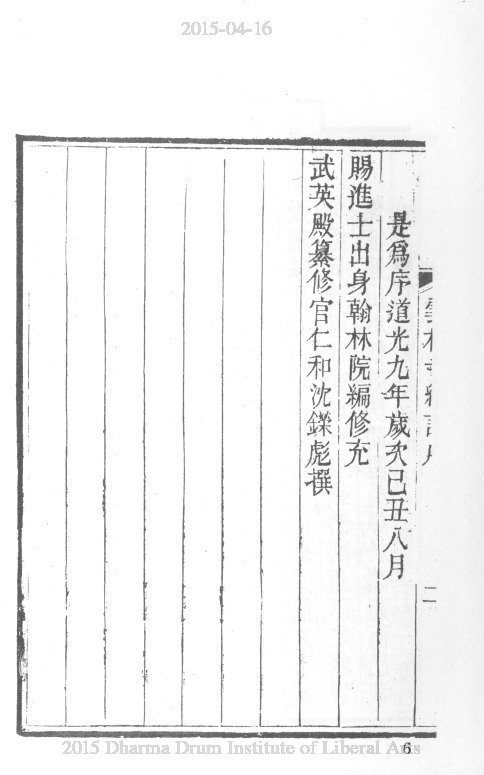 2015-04-16
是爲序道光九年歲次己丑八月
賜進士出身翰林院編修充
武英殿纂修官仁和沈鑅彪撰
二
2015 Dharma Drum Institute of Liberal Arts
6